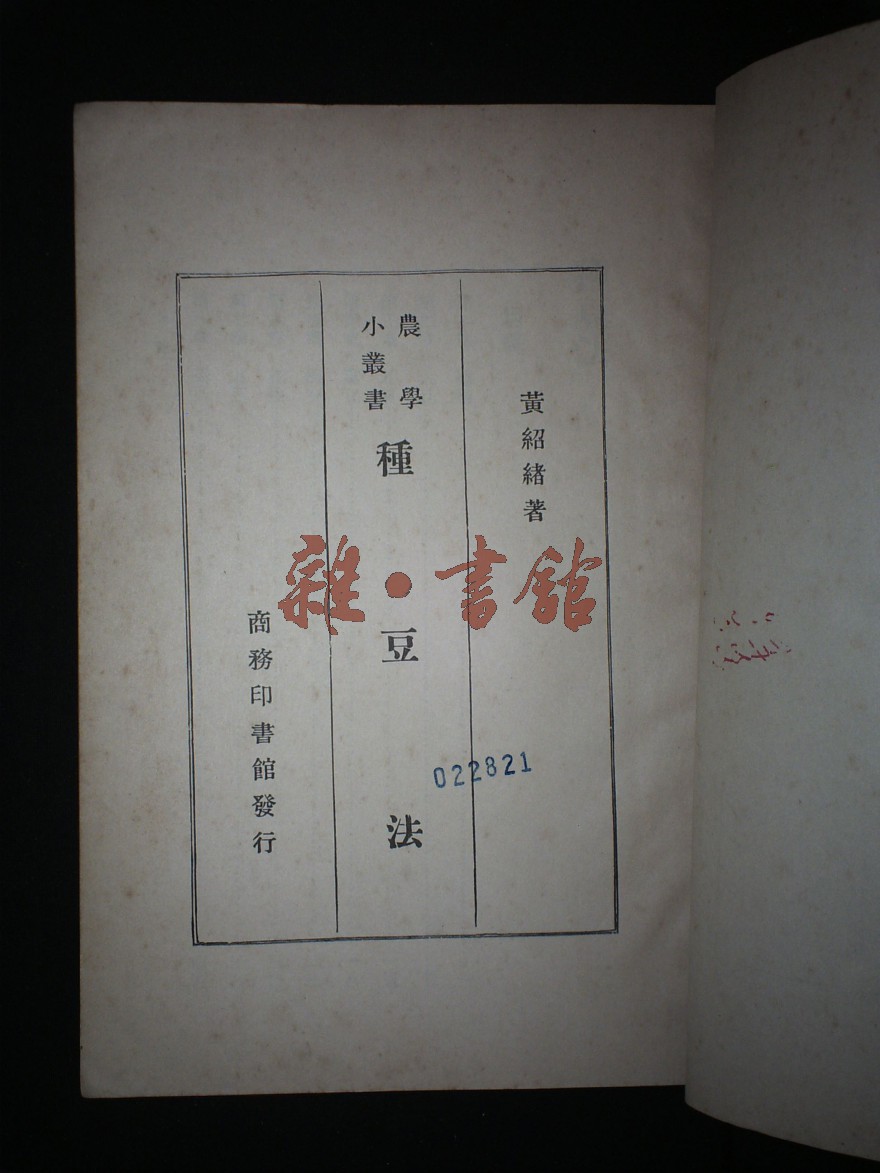 黃紹緒著
農學
小叢書
種豆法
商務印書館發行
022821
雜·書館